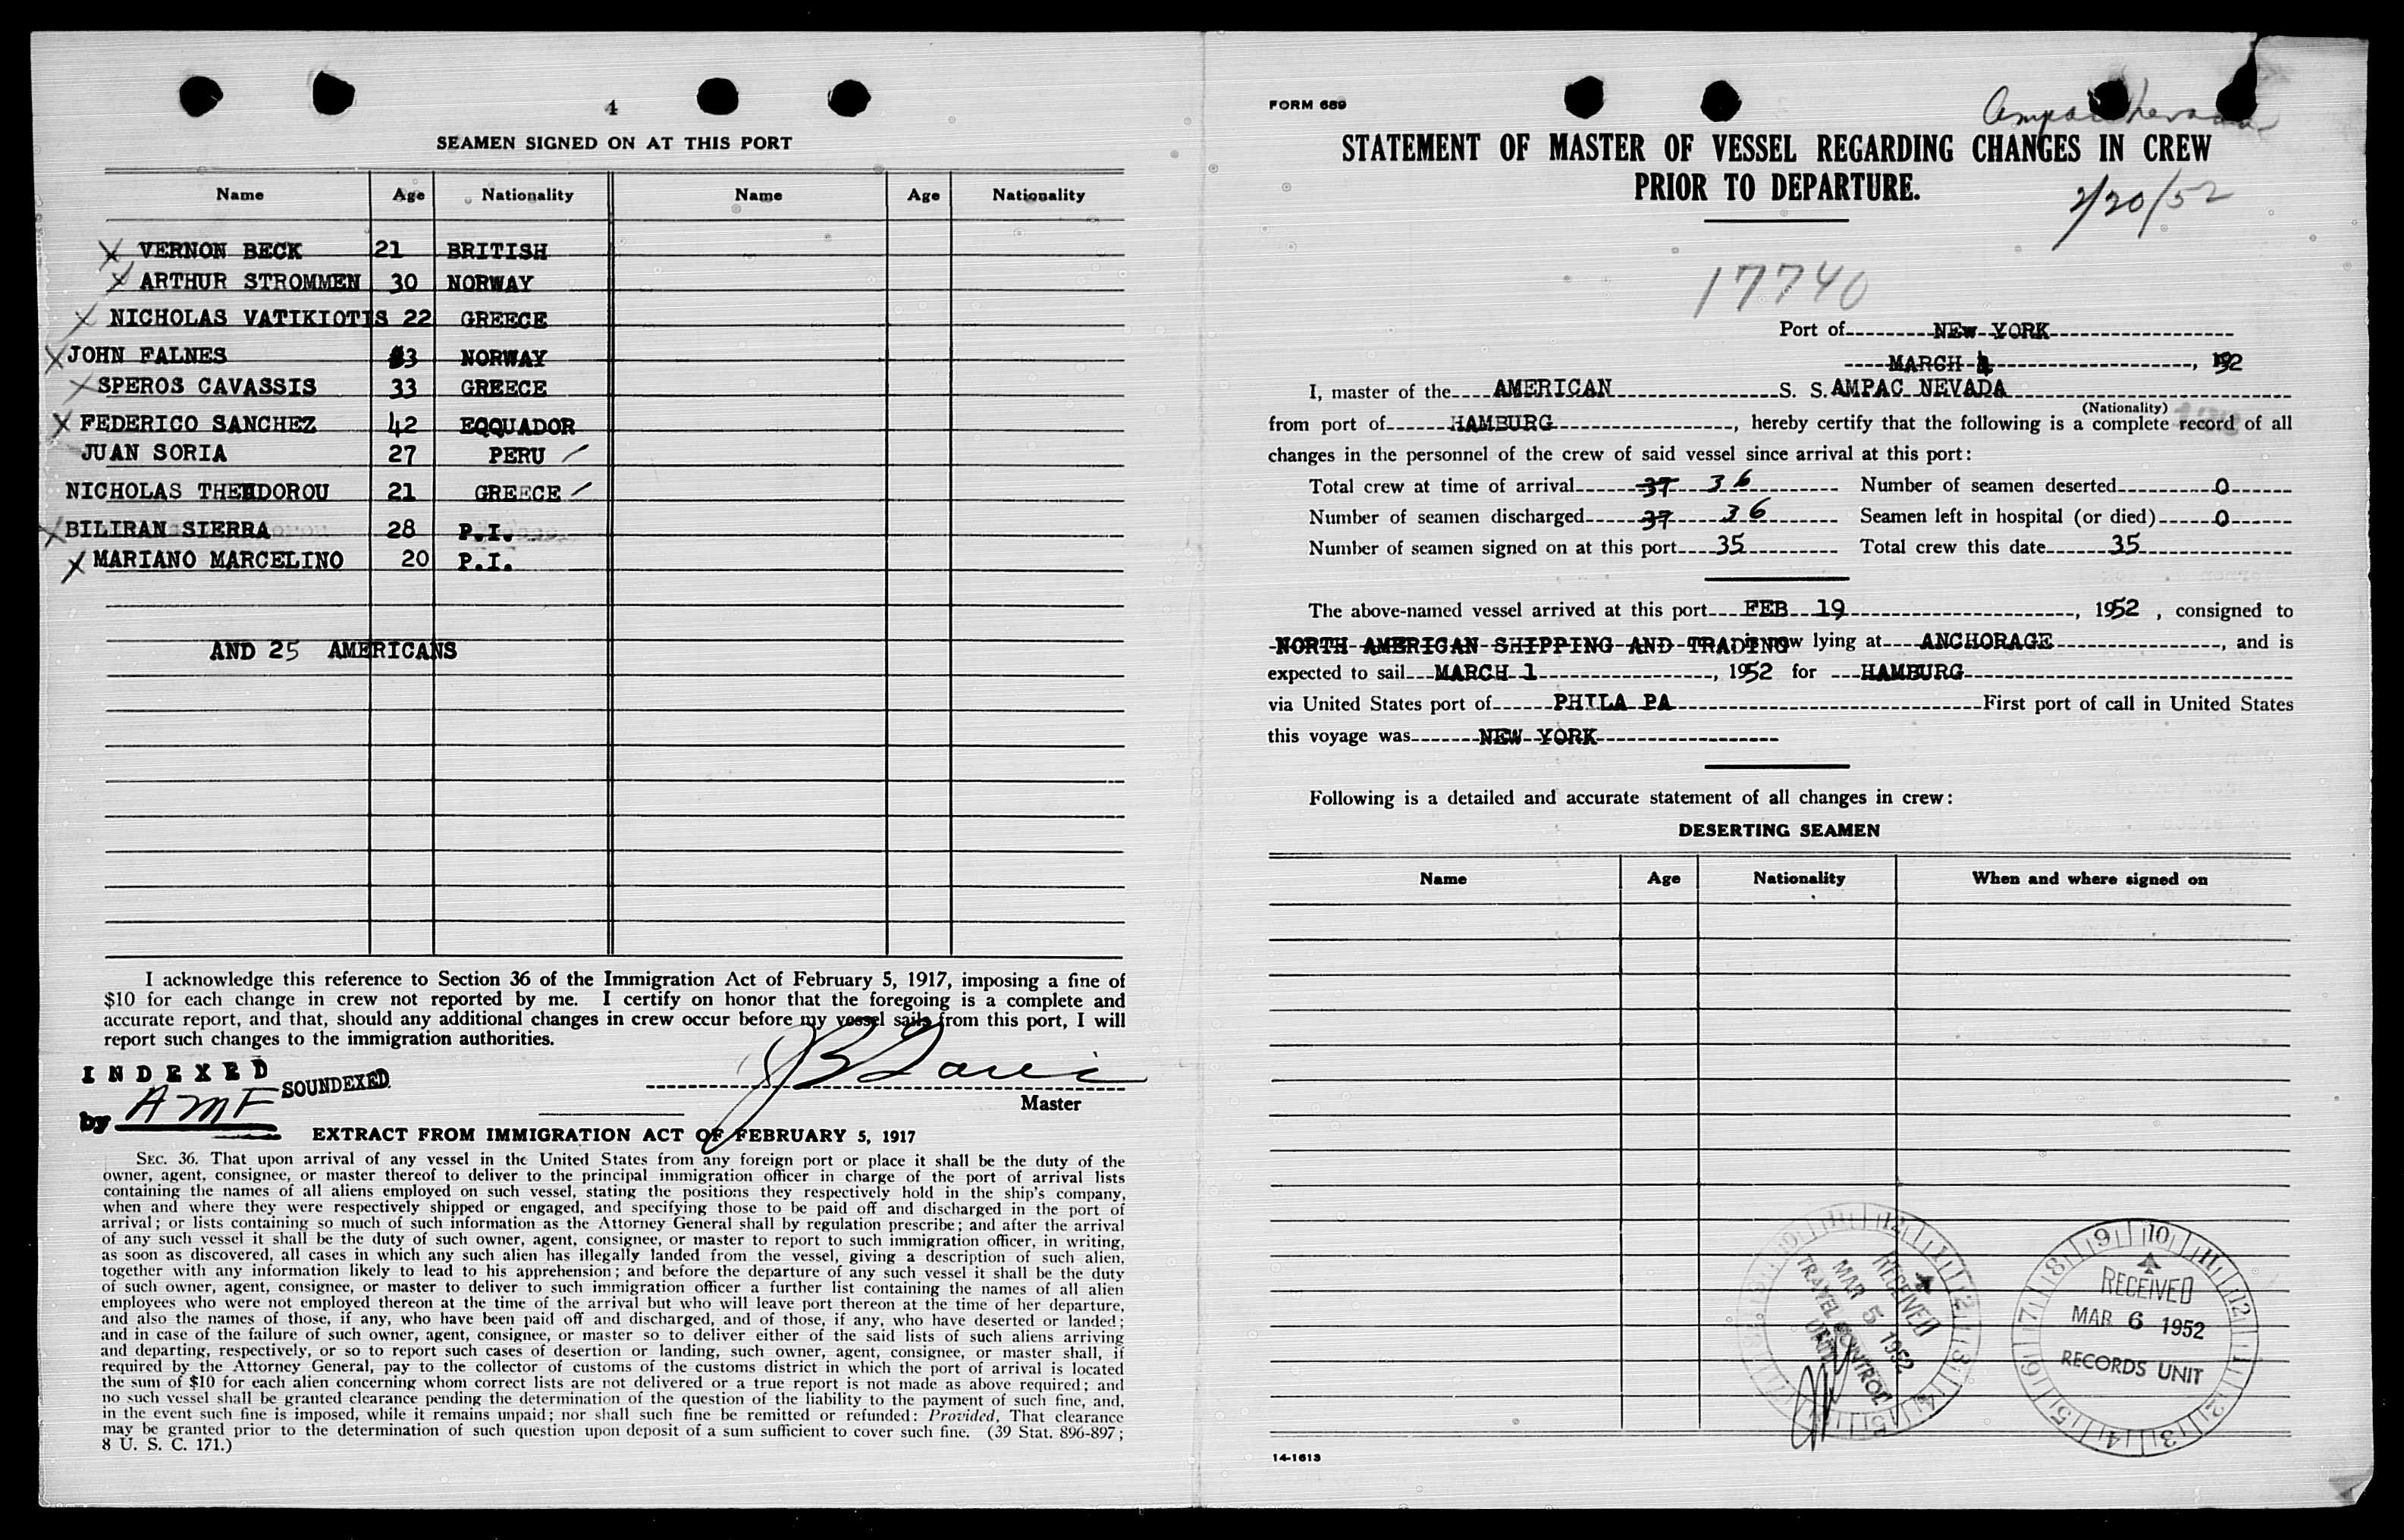 4
SEAMEN SIGNED ON AT THIS PORT
Name Age Nationality Name Age Nationality
X VERNON BECK 21 BRITISH
X ARTHUR STROMMEN 30 NORWAY
X NICHOLAS VATIKIOTIS 22 GREECE
X JOHN FALNES 3 NORWAY
X SPEROS CAVASSIS 33 GREECE
X FEDERICO SANCHEZ 42 EQQUADOR
JUAN SORIA 27 PERU /
NICHOLAS THEODOROU 21 GREECE /
X BILIRAN SIERRA 28 P.I.
X MARIANO MARCELINO 20 P.I.
AND 25 AMERICANS
I acknowledge this reference to Section 36 of the Immigration Act of February 5, 1917, imposing a fine of
$10 for each change in crew not reported by me. I certify on honor that the foregoing is a complete and
accurate report, and that, should any additional changes in crew occur before my vessel sails from this port, I will
report such changes to the immigration authorities.
INDEXED SOUNDEXED
by AMF
Master
EXTRACT FROM IMMIGRATION ACT OF FEBRUARY 5, 1917
SEC. 36. That upon arrival of any vessel in the United States from any foreign port or place it shall be the duty of the
owner, agent, consignee, or master thereof to deliver to the principal immigration officer in charge of the port of arrival lists
containing the names of all aliens employed on such vessel, stating the positions they respectively hold in the ship's company,
when and where they were respectively shipped or engaged, and specifying those to be paid off and discharged in the port of
arrival; or lists containing so much of such information as the Attorney General shall by regulation prescribe; and after the arrival
of any such vessel it shall be the duty of such owner, agent, consignee, or master to report to such immigration officer, in writing,
as soon as discovered, all cases in which any such alien has illegally landed from the vessel, giving a description of such alien,
together with any information likely to lead to his apprehension; and before the departure of any such vessel it shall be the duty
of such owner, agent, consignee, or master to deliver to such immigration officer a further list containing the names of all alien
employees who were not employed thereon at the time of the arrival but who will leave port thereon at the time of her departure,
and also the names of those, if any, who have been paid off and discharged, and of those, if any, who have deserted or landed;
and in case of the failure of such owner, agent, consignee, or master so to deliver either of the said lists of such aliens arriving
and departing, respectively, or so to report such cases of desertion or landing, such owner, agent, consignee, or master shall, if
required by the Attorney General, pay to the collector of customs of the customs district in which the port of arrival is located
the sum of $10 for each alien concerning whom correct lists are not delivered or a true report is not made as above required; and
no such vessel shall be granted clearance pending the determination of the question of the liability to the payment of such fine, and,
in the event such fine is imposed, while it remains unpaid; nor shall such fine be remitted or refunded: Provided, That clearance
may be granted prior to the determination of such question upon deposit of a sum sufficient to cover such fine. (39 Stat. 896-897;
8 U. S. C. 171.)
FORM 689
Ampac Nevada
STATEMENT OF MASTER OF VESSEL REGARDING CHANGES IN CREW
PRIOR TO DEPARTURE.
2/20/52
17740
Port of NEW YORK
MARCH 1, 1952
I, master of the AMERICAN S. S. AMPAC NEVADA
(Nationality)
from port of HAMBURG, hereby certify that the following is a complete record of all
changes in the personnel of the crew of said vessel since arrival at this port:
Total crew at time of arrival 37 36 Number of seamen deserted 0
Number of seamen discharged 37 36 Seamen left in hospital (or died) 0
Number of seamen signed on at this port 35 Total crew this date 35
The above-named vessel arrived at this port FEB 19, 1952, consigned to
NORTH AMERICAN SHIPPING AND TRADING now lying at ANCHORAGE, and is
expected to sail MARCH 1, 1952 for HAMBURG
via United States port of PHILA PA First port of call in United States
this voyage was NEW YORK
Following is a detailed and accurate statement of all changes in crew:
DESERTING SEAMEN
Name Age Nationality When and where signed on
RECEIVED
MAR 5 1952
TRAVEL CONTROL
UNIT
RECEIVED
MAR 6 1952
RECORDS UNIT
14-1613